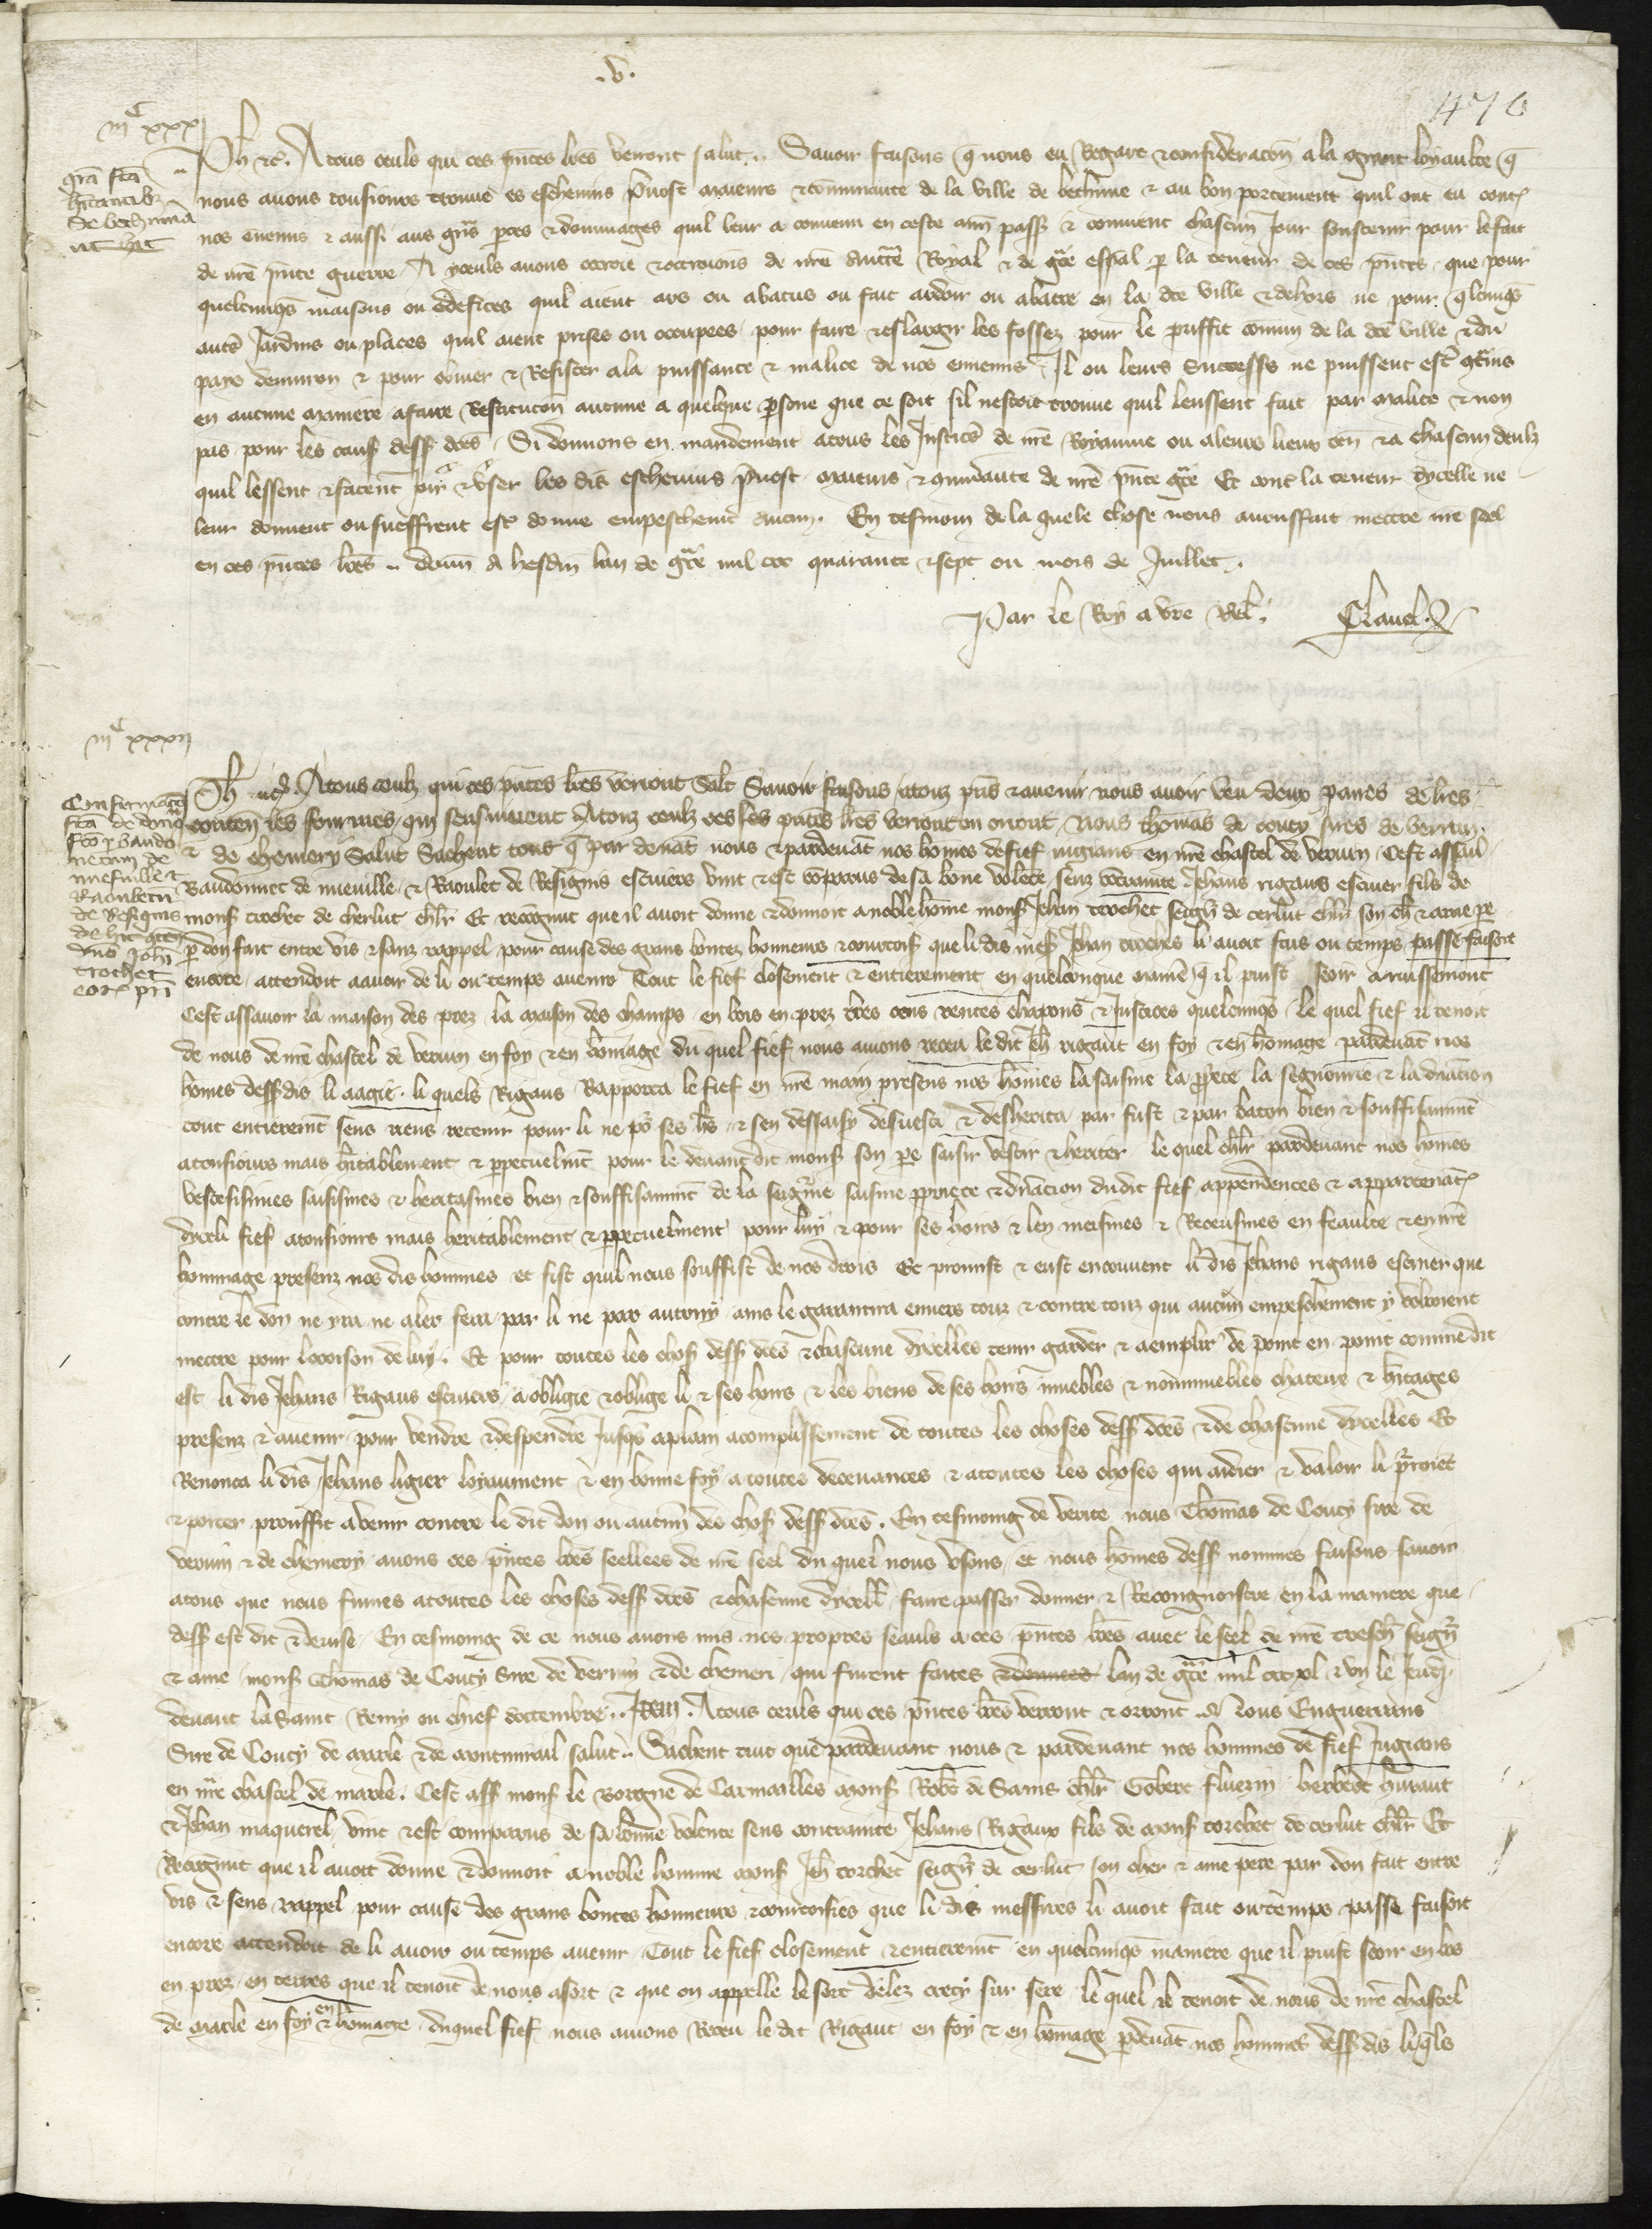 .v.
470
iiiᶜ xxxi
gra fca
hitantibz
de bethunia
ut hic
Ph etc. A tous ceuls qui ces pntes lres verront salut. Savoir faisons q nous eu regart et consideracon a la grant loyaulte q
nous avons tousiours trouve es eschevins prevost maieurs et comunaute de la ville de bethune et au bon portement quil ont eu contr
nos enemis et aussi aus grans pertes et dommages quil leur a convenu en ceste ann passee et convient chascun Jour soustenir pour le fait
de nre pnte guerre A yceuls avons ottroie et ottroions de nre auctte Royal et de gce espal p la teneur de ces pntes que pour
quelcunqs maisons ou edefices quil aient ars ou abatus ou fait ardoir ou abatre en la dce ville et dehors ne pour qlcunqs
autres Jardins ou places quil aient prises ou occupees pour faire et eslargir les fossez pour le prouffit comun de la dce ville et du
pays denviron et pour obvier et Resister a la puissance et malice de nos enemis Il ou leurs successrs ne puissent estr gtrains
en aucune maniere a faire Restitucon aucune a quelque psone que ce soit sil nestoit trouve quil leussent fait par malice et non
pas pour les caus dess dces Si donnons en mandement a tous les Justices de nre Royaume ou a leurs lieux ten et a chascun deulz
quil lessent et facent joir et user les dis eschevins prevost maieurs et comunaute de nre pnte gce Et contr la teneur dycelle ne
leur donnent ou sueffrent estr donne empeschemt aucun. En tesmoin de la quele chose nous avons fait mettre nre seel
en ces pntes lres donn A hesdin lan de gce mil ccc quarante et sept ou mois de Juillet.
Par le Roy a vre rel. Clavel
iiiᶜ xxxii
Confirmaco
fca de dono
fco p baudo
netum de
nuefville et
Raouletu
de Resignis
de hit gten
dno Johi
trochet
eor pri
Ph etc. A tous ceulz qui ces pntes lres verront Salt Savoir faisons a touz pns et avenir nous avoir veu deux paires de lres
conten les fourmes qui sensuivent A touz ceulz qui ces pntes lres verront ou orront Nous thomas de coucy sires de vervin
et de chemery Salut Sachent tous q par devat nous et pardevat nos homes de fief iugians en nre chastel de vervin Cest assav
Baudonnet de nueville et Raoulet de Resignis escuiers vint et est comparus de sa bone volente senz contrainte Jehans rigaus escuier fils de
mons trochet de cherlut chlr Et recognut que il avoit donne et donnoit a noble home mons Jehan trochet seign de cerlut chlr son ch et ame pe
p don fait entre vis et sanz rappel pour cause des grans bontez honneurs et courtois que li dis mes Jehan troches li avoit fais ou temps passe faisoit
encore attendoit a avoir de li ou temps avenir Tout le fief closement et entierement en quelconque manie q il puist seoir
Cest assavoir la maison des prez la maison des champs en bois en prez tres cens rentes chapons et Justices quelcunqs le quel fief il tenoit
de nous de nre chastel de vervin en foy et en homage du quel fief nous avions receu le dit Jeh rigaut en foy et en homage pardevat nos
homes dess dis li aagie li quels Rigaus Rapporta le fief en nre main presens nos homes la saisine la ppete la segnourie et la dnation
tout entieremt sens riens retenir pour li ne po ses hrs et sen dessaisy desvesti et desherita par fust et par baton bien et souffisamt
a tousiours mais hitablement et ppetuelmt pour le devant dit mons son pe saisir vestir et heriter le quel chlr pardevant nos homes
vestesismes saisismes et heritasmes bien et souffisamt de la seigrie saisine pprietce et dnation du dit fief appendences et appartenat
dyceli fief a tousiours mais heritablement et ppetuelment pour luy et pour ses hoirs et len meismes et Receusmes en feaulte et en nre
hommage presenz nos dis hommes et fist quil nous souffist de nos drois Et promist et eust encouvent li dis Jehans rigaus escuier que
contre le don ne yra ne aler fera par li ne par autruy ains le garantira envers touz et contre touz qui aucun empeschement y vorroient
mettre pour looison de luy. Et pour toutes les chos dess dces et chascune dicelles tenir garder et aemplir de point en point comme dit
est li dis Jehans Rigaus escuiers a obligie et oblige li et ses hoirs et les biens de ses hoirs muebles et nonmuebles chateux et hitages
presenz et avenir pour vendre et despendre Jusqs a plain acomplissement de toutes les choses dess dces et de chascune dycelles Et
Renonca li dis Jehans ligier loyaument et en bonne foy a toutes decevances et a toutes les choses qui aidier et valoir li porroiet
et porter prouffit a venir contre le dit don ou aucun des chos dess dces. En tesmoing de verite nous Thomas de Coucy sire de
vervin et de chemery avons ces pntes lres seellees de nre seel du quel nous usons Et nous homes dess nommes faisons savoir
a tous que nous fumes a toutes les choses dess dces et chascune dycell faire passer donner et Recongnoistre en la maniere que
dess est dit et devise En tesmoing de ce nous avons mis nos propres seauls a ces pntes lres avec le seel de nre treschr seign
et ame mons Thomas de Coucy Sire de vervin et de chemeri qui furent faites et donnees lan de gce mil ccc xl et un le Jeudi
devant la saint Remy ou chief doctembre. Item. A tous ceuls qui ces pntes lres verront et orront Nous Enguerrans
Sire de Coucy de marle et de montmirail salut. Sachent tuit que pardevant nous et pardevant nos hommes de fief Jugians
en nre chastel de marle. Cest ass mons le Borgne de Carmailles mons Robt de Sains chlr Gobert fluerin herbert huraut
et Jehan maquerel vint et est comparus de sa bonne volente sens contrainte Jehans Rigaux fils de mons torchet de cerlut chlr Et
Recognut que il avoit donne et donnoit a noble homme mons Jeh torchet seign de cerlut son cher et ame pere par don fait entre
vis et sens rappel pour cause des grans bontes honneurs et courtoisies que li dis messires li avoit fait ou temps passe faisoit
encore attendoit de li avoir ou temps avenir Tout le fief closement et entieremt en quelcunqs maniere que il puist seoir en bos
en prez en terres que il tenoit de nous a sort et que on appelle le sort delez crecy sur sere le quel il tenoit de nous de nre chastel
de marle en foy et en homaige duquel fief nous avions Receu le dit Rigaut en foy et en homage pdevat nos hommes dess dis liqls